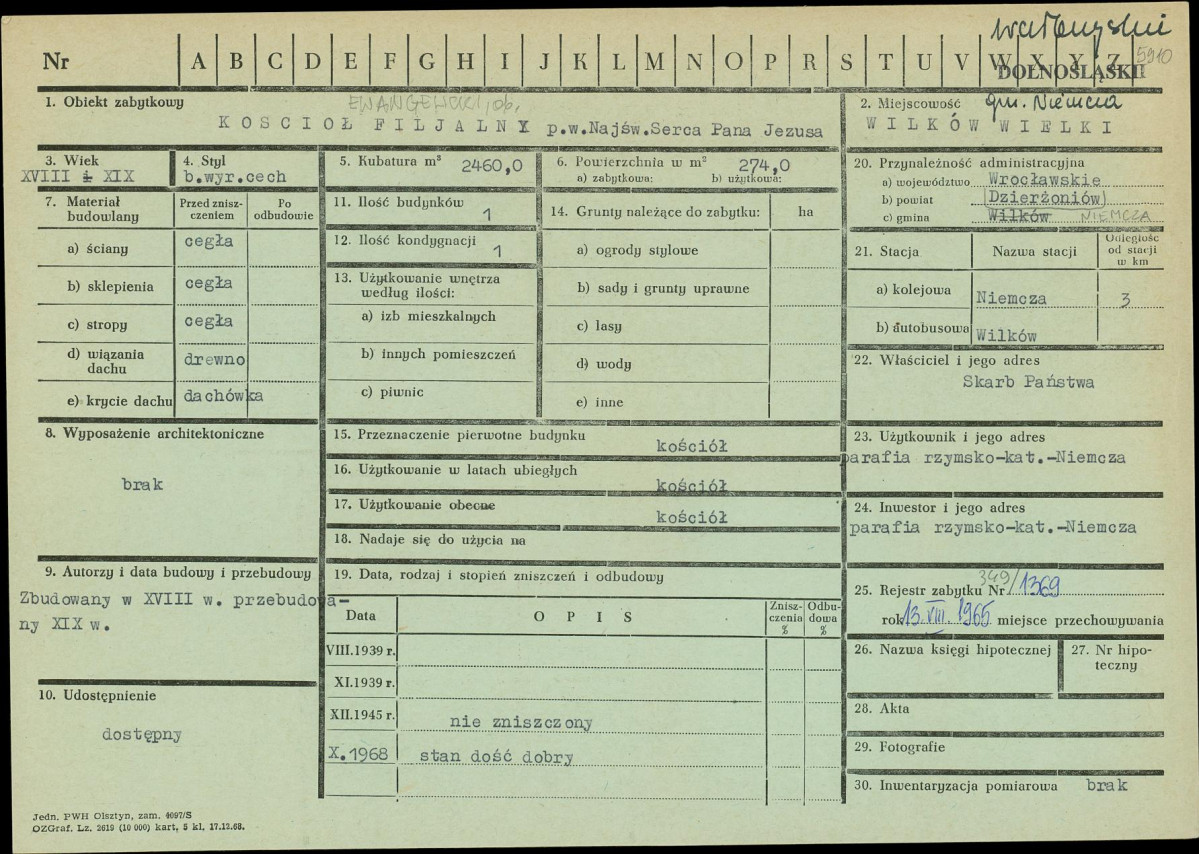 wałbrzyskie
Nr A B C D E F G H I J K L M N O P R S T U V W X Y Z 5910
DOLNOŚLĄSKIE
1. Obiekt zabytkowy EWANGELICKI, ob.
KOSCIOŁ FILJALNY p.w.Najśw.Serca Pana Jezusa
2. Miejscowość gm. Niemcza
WILKÓW WIELKI
3. Wiek
XVIII i XIX
4. Styl
b.wyr.cech
5. Kubatura m³ 2460,0
6. Powierzchnia w m² 274,0
a) zabytkowa: b) użytkowa:
20. Przynależność administracyjna
a) województwo Wrocławskie
b) powiat Dzierżoniów
c) gmina Wilków NIEMCZA
7. Materiał budowlany
Przed zniszczeniem
Po odbudowie
a) ściany cegła
b) sklepienia cegła
c) stropy cegła
d) wiązania dachu drewno
e) krycie dachu dachówka
11. Ilość budynków 1
12. Ilość kondygnacji 1
13. Użytkowanie wnętrza
według ilości:
a) izb mieszkalnych
b) innych pomieszczeń
c) piwnic
14. Grunty należące do zabytku: ha
a) ogrody stylowe
b) sady i grunty uprawne
c) lasy
d) wody
e) inne
21. Stacja Nazwa stacji Odległość od stacji w km
a) kolejowa Niemcza 3
b) autobusowa Wilków
22. Właściciel i jego adres
Skarb Państwa
8. Wyposażenie architektoniczne
brak
15. Przeznaczenie pierwotne budynku kościół
16. Użytkowanie w latach ubiegłych kościół
17. Użytkowanie obecne kościół
18. Nadaje się do użycia na
23. Użytkownik i jego adres
parafia rzymsko-kat.-Niemcza
24. Inwestor i jego adres
parafia rzymsko-kat.-Niemcza
9. Autorzy i data budowy i przebudowy
Zbudowany w XVIII w. przebudowa-
ny XIX w.
19. Data, rodzaj i stopień zniszczeń i odbudowy
Data OPIS Zniszczenia % Odbudowa %
VIII.1939 r.
XI.1939 r.
XII.1945 r. nie zniszczony
X.1968 stan dość dobry
25. Rejestr zabytku Nr 349/1369
rok 13.VIII.1965 miejsce przechowywania
26. Nazwa księgi hipotecznej
27. Nr hipoteczny
28. Akta
29. Fotografie
30. Inwentaryzacja pomiarowa brak
10. Udostępnienie
dostępny
Jedn. PWH Olsztyn, zam. 4097/S
OZGraf. Lz. 2619 (10 000) kart. 5 kl. 17.12.68.